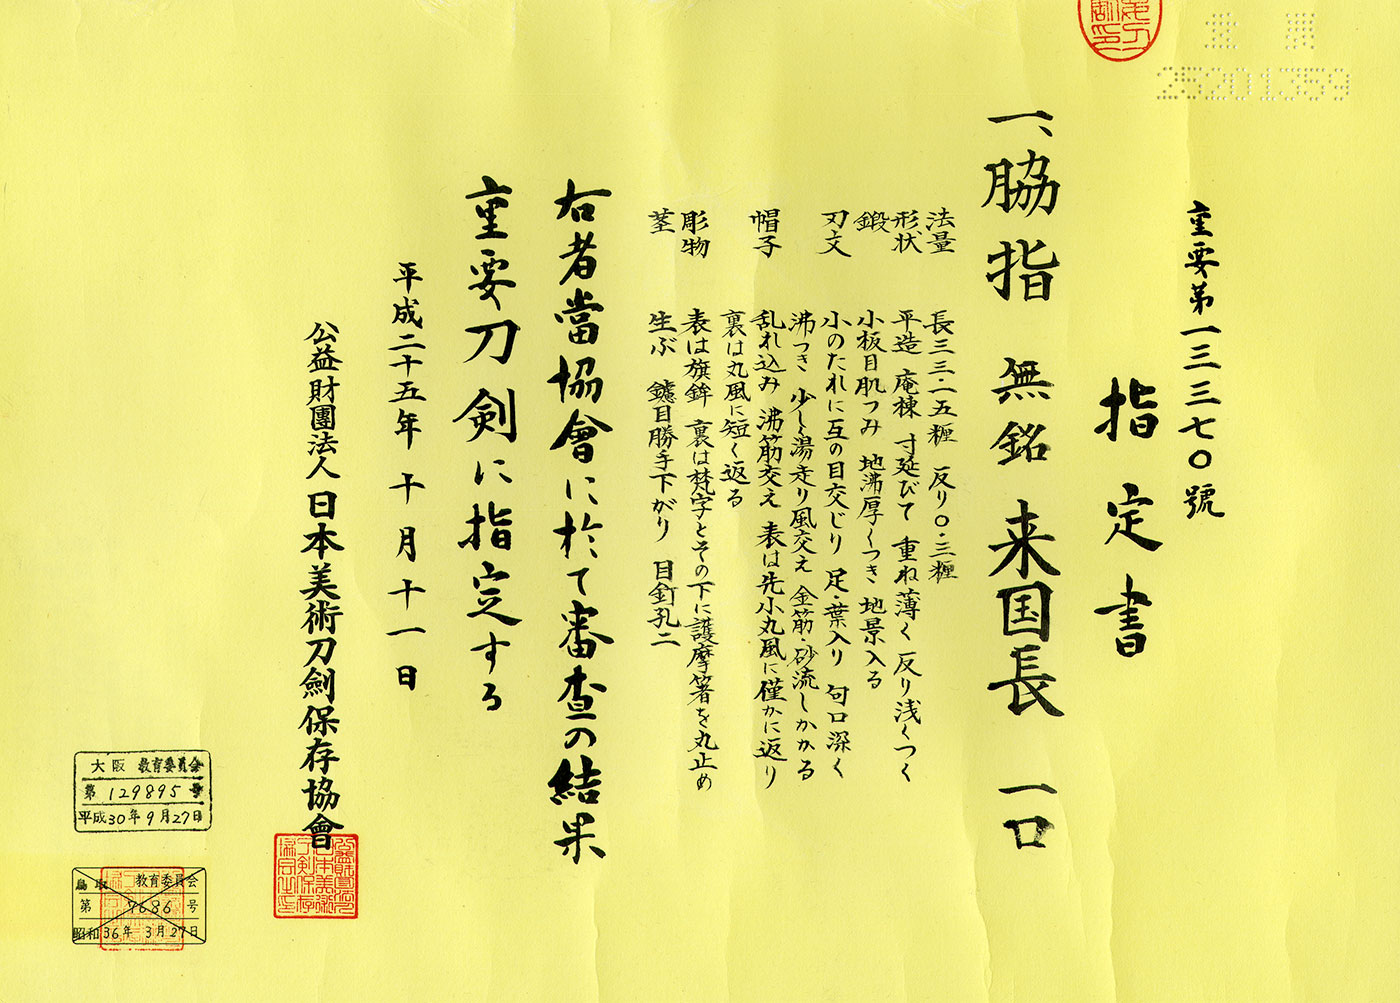 重要第一三三七〇號
指定書
一、脇指 無銘 来国長 一口
法量 長三三・一五糎 反り〇・三糎
形状 平造 庵棟 寸延びて 重ね薄く 反り浅くつく
鍛 小板目肌つみ 地沸厚くつき 地景入る
刃文 小のたれに互の目交じり 足・葉入り 匂口深く
沸つき 少しく湯走り風交え 金筋・砂流しかかる
帽子 乱れ込み 沸筋交え 表は先小丸風に僅かに返り
裏は丸風に短く返る
彫物 表は旗鉾 裏は梵字とその下に護摩箸を丸止め
茎 生ぶ 鑢目勝手下がり 目釘孔二
右者當協會に於て審査の結果
重要刀剣に指定する
平成二十五年 十月 十一日
公益財團法人 日本美術刀劍保存協會
25201359
大阪 教育委員会
第 129895 号
平成30年9月27日
鳥取 教育委員会
第 7686 号
昭和36年3月27日